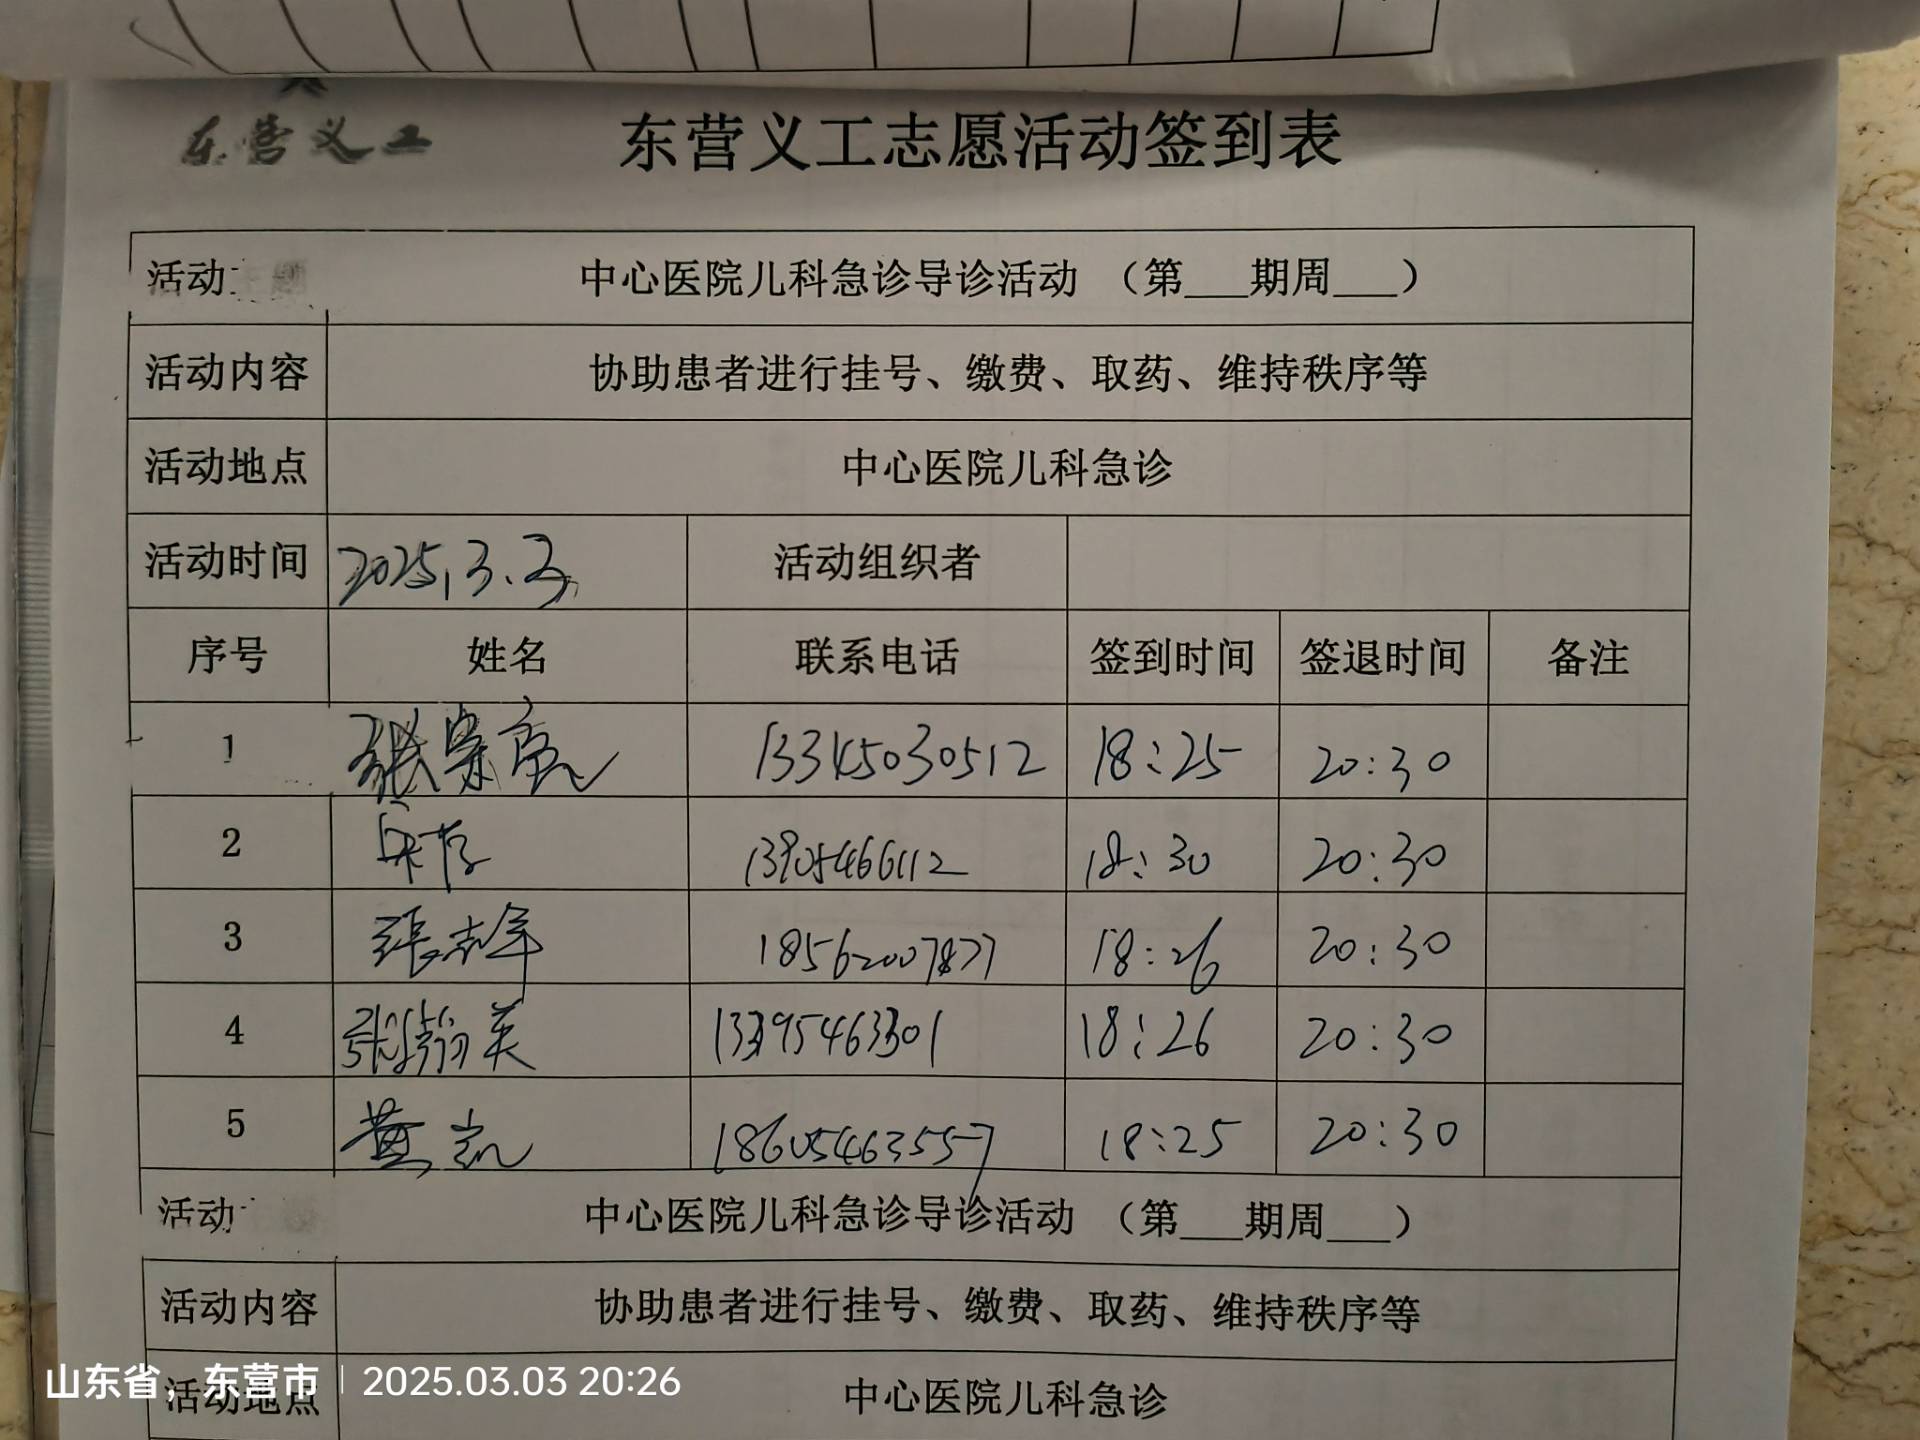 东营义工
东营义工志愿活动签到表
活动 中心医院儿科急诊导诊活动 （第___期周___）
活动内容 协助患者进行挂号、缴费、取药、维持秩序等
活动地点 中心医院儿科急诊
活动时间 2025.3.3 活动组织者
序号 姓名 联系电话 签到时间 签退时间 备注
1 张崇亮 13345030512 18:25 20:30
2 13905466112 18:30 20:30
3 張志军 18562007877 18:26 20:30
4 英 13395463301 18:26 20:30
5 黄凯 18605463557 18:25 20:30
活动 中心医院儿科急诊导诊活动 （第___期周___）
活动内容 协助患者进行挂号、缴费、取药、维持秩序等
活动地点 中心医院儿科急诊
山东省，东营市 2025.03.03 20:26